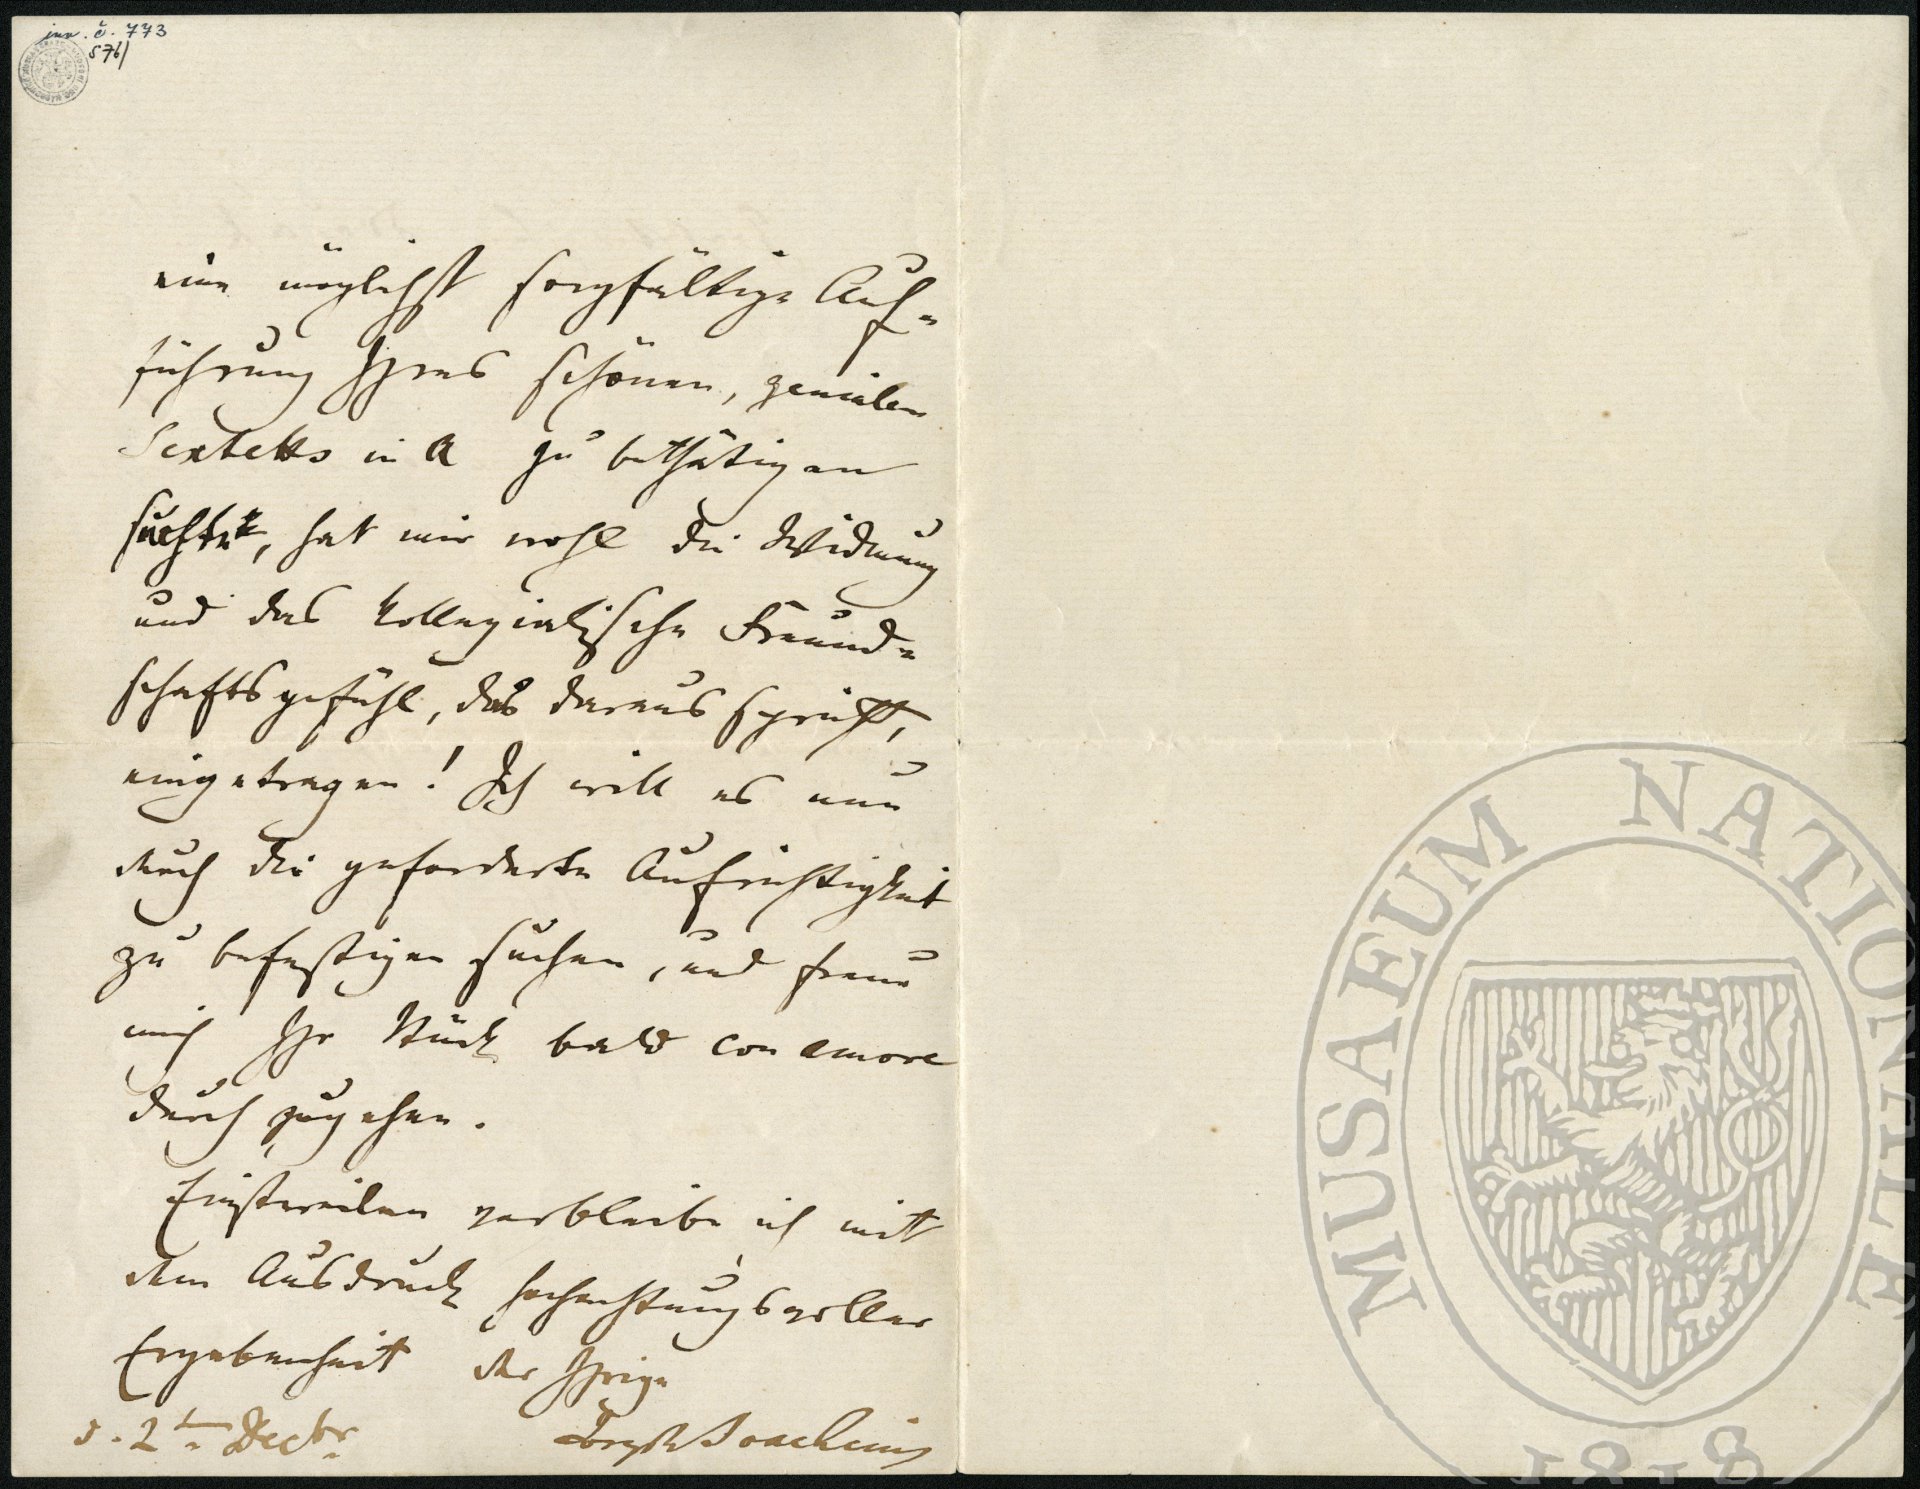 inv. č. 773
576/
eine möglichst sorgfältige Auf-
führung Ihres schönen, genialen
Sextetts in A zu bethätigen
suchte, hat mir wohl die Widmung
und das kollegialische Freund-
schaftsgefühl, das daraus spricht,
eingetragen! Ich will es nun
durch die geforderte Aufrichtigkeit
zu befestigen suchen, und freue
mich Ihr Stück bald con amore
durchzugehen.
Einstweilen verbleibe ich mit
dem Ausdruck hochachtungsvoller
Ergebenheit der Ihrige
d. 2ten Decbr Joseph Joachim
MUSAEUM NATIONALE
1818